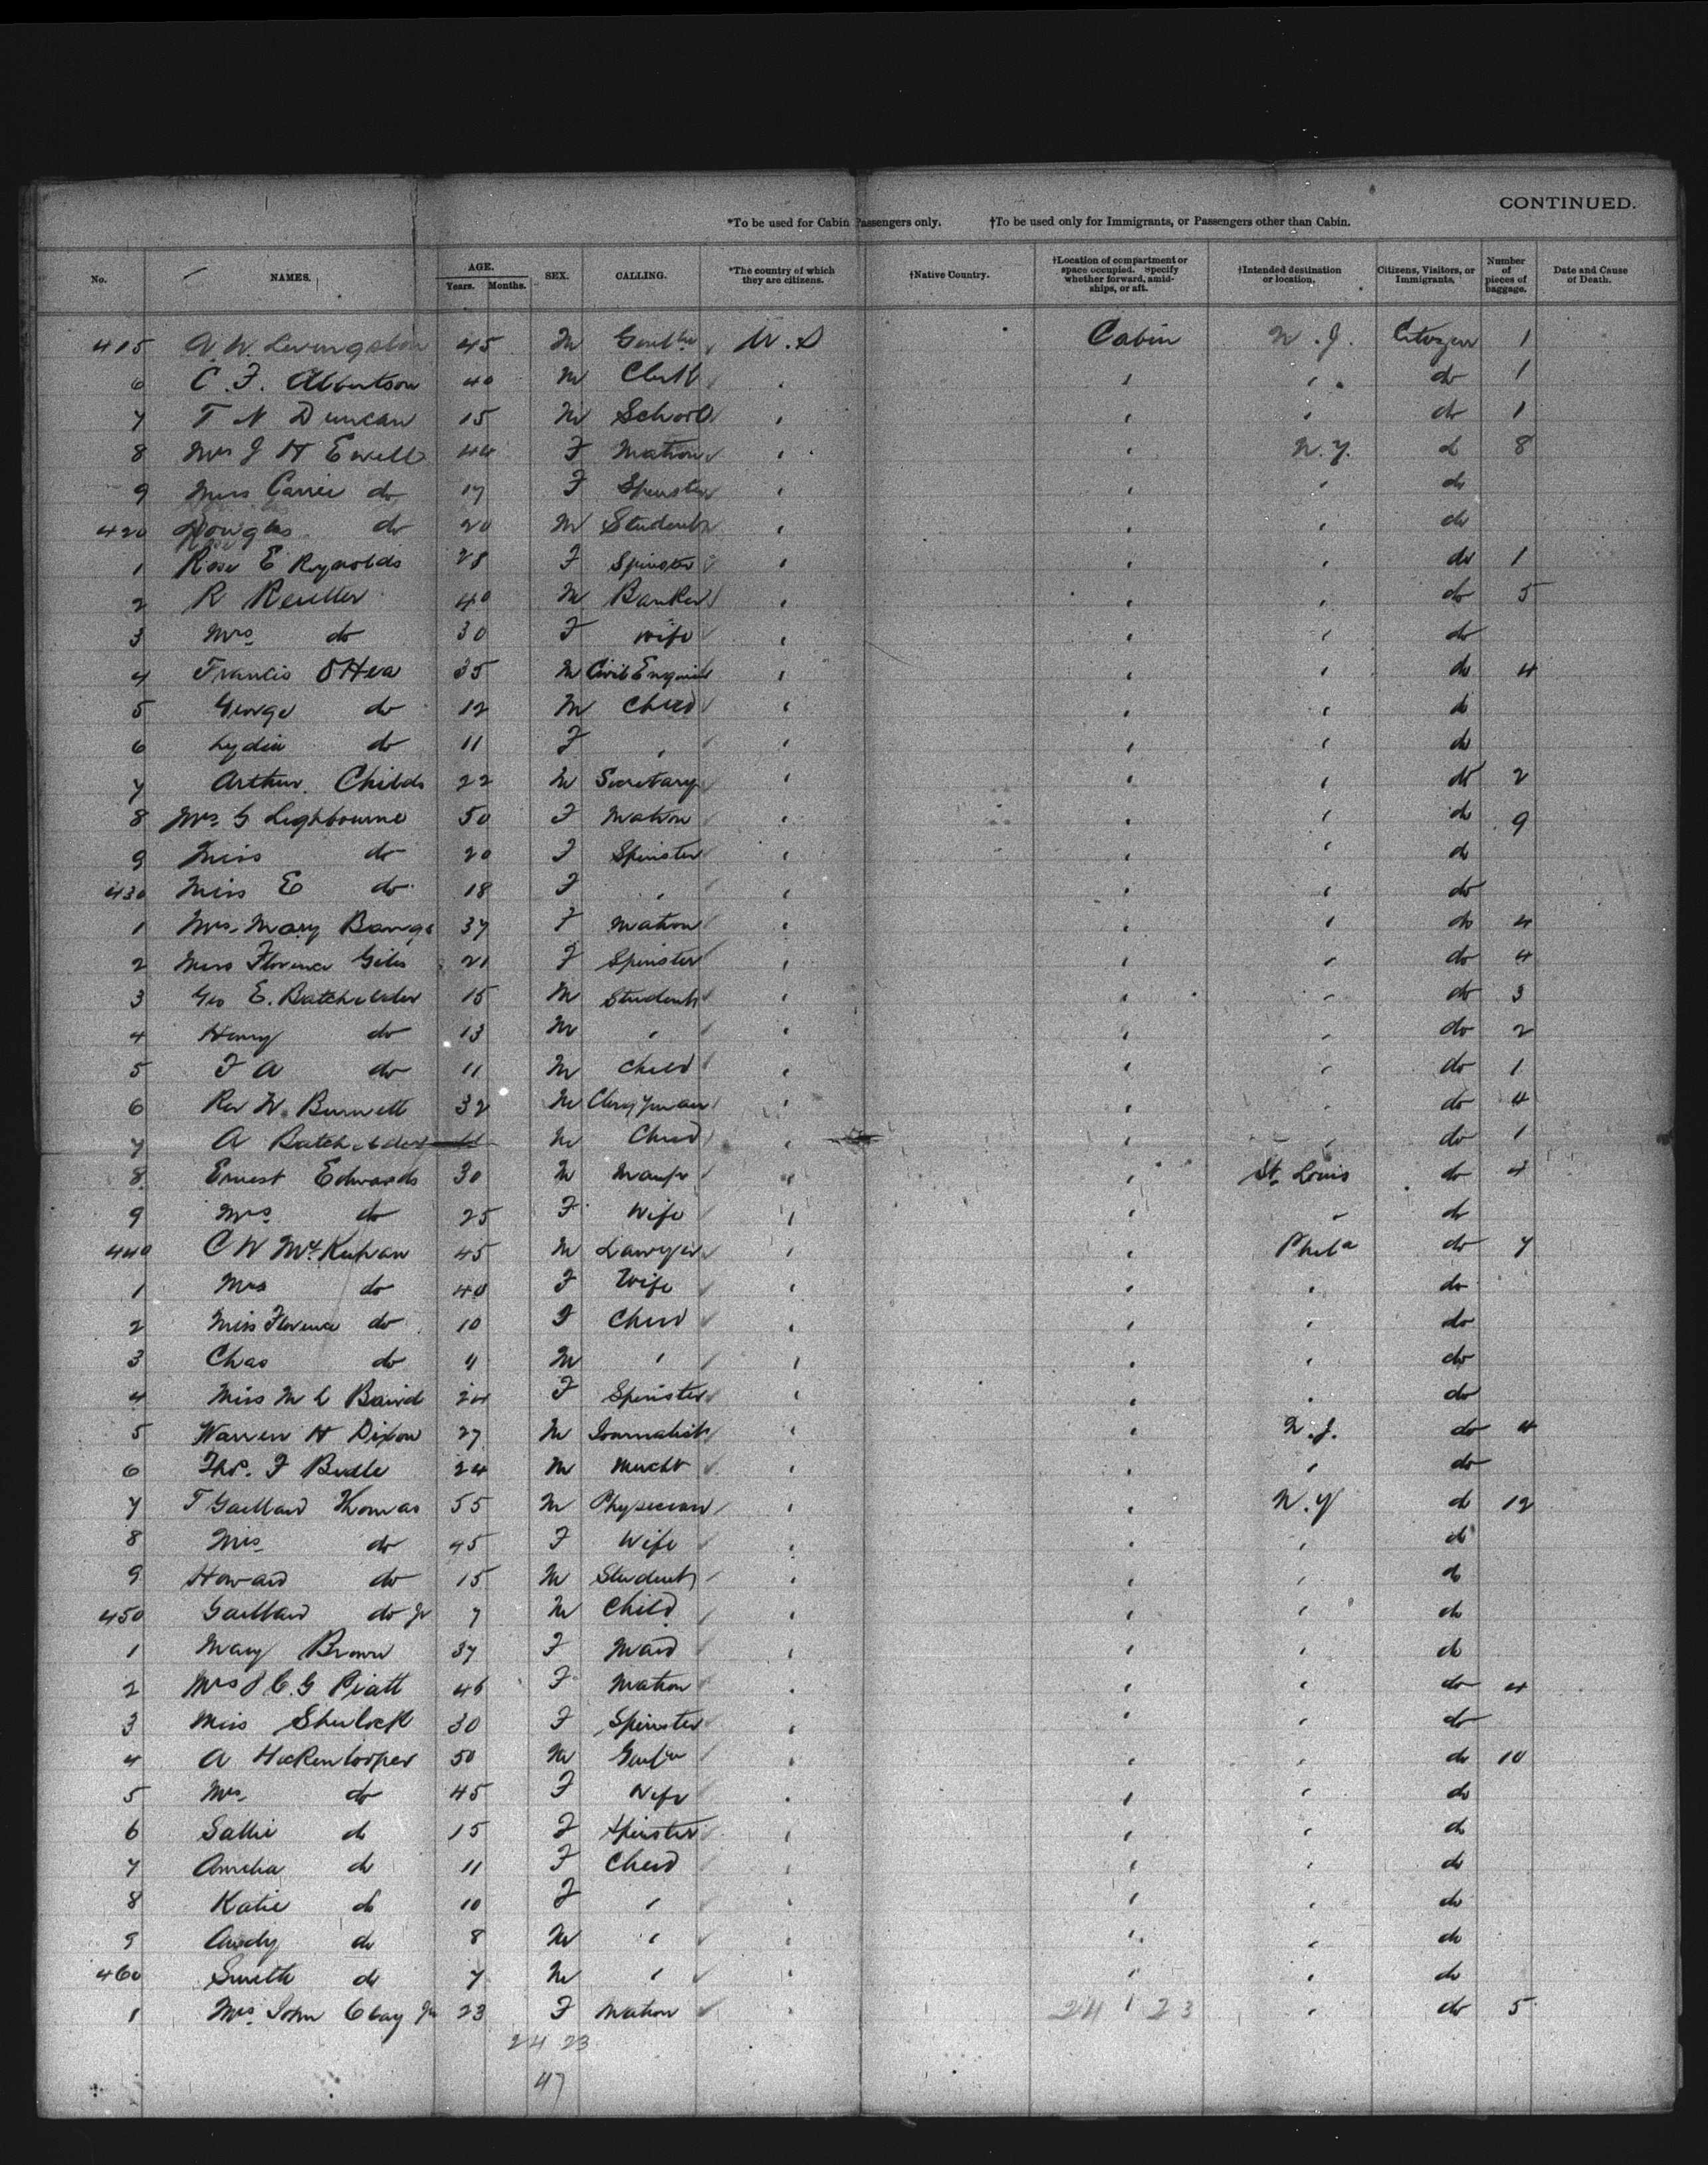 CONTINUED.
*To be used for Cabin Passengers only. †To be used only for Immigrants, or Passengers other than Cabin.
No. NAMES. AGE. Years. Months. SEX. CALLING. *The country of which they are citizens. †Native Country. †Location of compartment or space occupied. Specify whether forward, amidships, or aft. †Intended destination or location. Citizens, Visitors, or Immigrants. Number of pieces of baggage. Date and Cause of Death.
415 A. W. Livingston 45 M U.S Cabin N. J. Citizen 1
6 C. F. Albertson 40 M Clerk do 1
7 T N Duncan 15 M School do 1
8 Mrs J H Ewell 44 F Matron N.Y. do 8
9 Miss Carrie do 17 F Spinster do
420 Douglas do 20 M Student do
1 Rose E Reynolds 28 F Spinster do 1
2 R 40 M Banker do 5
3 Mrs do 30 F Wife do
4 Francis O'Hea 35 M Civil do 4
5 George do 12 M Child do
6 Lydia do 11 F do
7 Arthur Childs 22 M Secretary do 2
8 Mrs G Lighbourne 50 F Matron do 9
9 Miss do 20 F Spinster do
430 Miss E do 18 F do
1 Mrs. Mary Bangs 37 F Matron do 4
2 Miss Florence Giles 21 F Spinster do 4
3 Geo E. Batchelder 15 M Student do 3
4 Henry do 13 M do 2
5 F A do 11 M Child do 1
6 Rev W. Burnett 32 M Clergyman do 4
7 A Batchelder M Child do 1
8 Ernest Edwards 30 M Manfr St. Louis do 4
9 Mrs do 25 F Wife do
440 C W 45 M Lawyer Phila do 7
1 Mrs do 40 F Wife do
2 Miss Florence do 10 F Child do
3 Chas do M do
4 Miss M C Baird 24 F Spinster do
5 Warren H Dixon 27 M Journalist N.J. do 4
6 Thos. F Bedle 24 M Mercht do
7 T Gaillard Thomas 55 M Physician N.Y do 12
8 Mrs do 45 F Wife do
9 Howard do 15 M Student do
450 Gaillard do Jr 7 M Child do
1 Mary Brown 37 F Maid do
2 Mrs C. G Piatt 46 F Matron do 4
3 Miss Sherlock 30 F Spinster do
4 A Hickenlooper 50 M do 10
5 Mrs. do 45 F Wife do
6 Sallie do 15 F Spinster do
7 Amelia do 11 F Child do
8 Katie do 10 F do
9 Andy do 8 M do
460 Smith do 7 M do
1 Mrs. John Clay Jr 23 F Matron 24 23 do 5
24 23
47